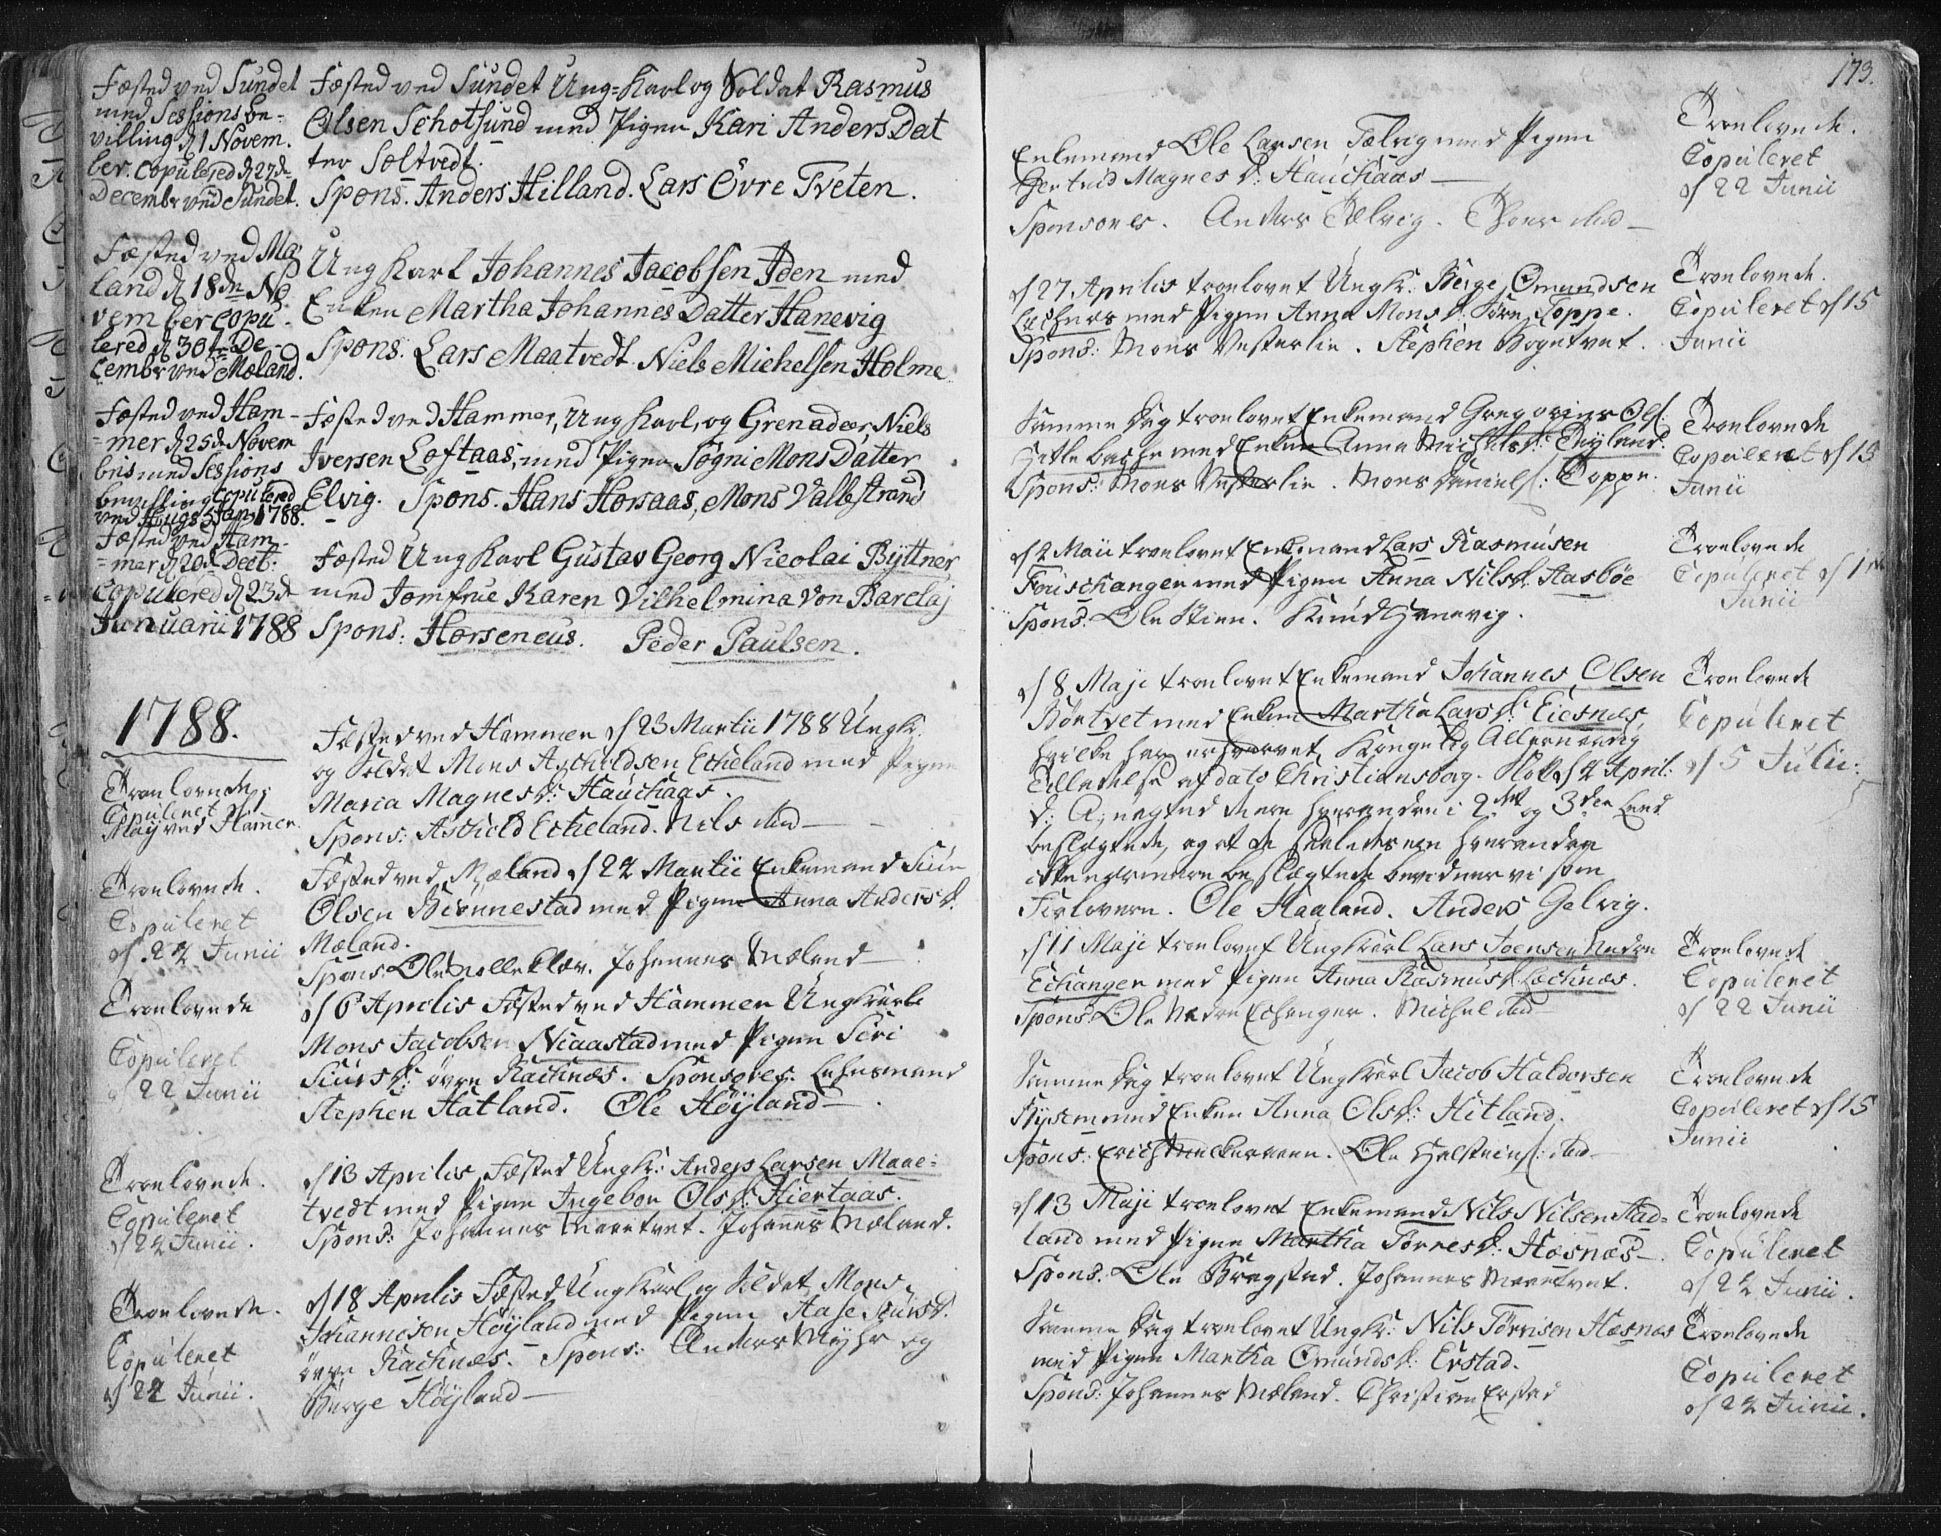 Fæsted ved Sundet
med Sessions be-
villing d 1 Novem.
ber. Copulered d 27de
Decembr ved Sundet.
Fæsted ved Sundet Ung-Karl og Soldat Rasmus
Olsen Schotsund med Pigen Kari Anders Dat
ter Soltvedt.
Spons. Anders Hilland. Lars Övre Tveten.
Fæsted ved Mæ
land d 18de No
vember Copu-
lered d 30te De-
cembr ved Mæland.
Ung Karl Johannes Jacobsen Iden med
Enken Martha Johannes Datter Hanevig
Spons. Lars Maatvedt. Niels Michelsen Holme
Fæsted ved Ham-
=mer d 25de Novem
bris med Sessions
bevilling Copulered
ved Hougs 3 Jan. 1788.
Fæsted ved Hammer, Ung Karl, og Grenadeer Niels
Iversen Loftaas, med Pigen Sögni Mons Datter
Elvig. Spons. Hans Horsaas, Mons Vallestrand
Fæsted ved Ham-
=mer d 20de Decb:
Copulered d 23de
Januarii 1788
Fæsted Ung Karl Gustav Georg Nicolai Byttner
med Jomfrue Karen Vilhelmina von Barclaj
Spons: Horseneus. Peder Paulsen.
1788.
Trolovede.
Copuleret d 1
Maÿ ved Hammer
Fæsted ved Hammer d 23 Martii 1788 Ungk.
og Soldat Mons Astholdsen Echeland med Pigen
Maria Magnes D: Hauchaas.
Spons: Asthold Echeland. Nils ibid
Trolovede.
Copuleret
d. 22 Junii
Fæsted ved Mæland d 22 Martii Enkemand Siur
Olsen Biönnestad med Pigen Anna Anders D.
Mæland.
Spons Ole Nolleklæv. Johannes Mæland
Trolovede
Copuleret
d 22 Junii
d 6 Aprilis Fæsted ved Hammer Ungkarl
Mons Jacobsen Niaastad med Pigen Siri
Siurs D: övre Rachnæs. Sponsores. Lehnsmand
Stephen Hatland. Ole Höÿland
Trolovede.
Copuleret
d 22 Junii.
d 13 Aprilis Fæsted Ungk: Anders Larsen Maae=
tvedt med Pigen Ingebor Ols D: Hiertaas.
Spons: Johannes Maaetvet. Johannes Mæland.
Trolovede.
Copuleret
d 22 Junii.
d 18 Aprilis Fæsted Ungkarl og Soldat Mons
Johannesen Höÿland med Pigen Aase Siurs D.
övre Rachnæs. Spons: Anders Myhr og
Börge Höÿland
173.
Enkemand Ole Larsen Tælvig med Pigen
Gertrud Magnes D: Hauchaas
Sponsores. Anders Tælvig. Thoer ibid
Trolovede.
Copuleret
d 22 Junii
d 27 Aprilis trolovet Ungk: Beige Omundsen
Lachnæs med Pigen Anna Mons D: Toppe.
Spons: Mons Vesterlie. Stephen Bognetvet.
Trolovede.
Copuleret d 15
Junii
Samme Dag trolovet Enkemand Gregorius Ols:
Hetlebache med Enken Anna Michels D: Thyland.
Spons: Mons Vesterlie. Mons Daniels: Toppe.
Trolovede
Copuleret d 15
Junii
d 2 Maii trolovet Enkemand Lars Rasmusen
Fouschanger med Pigen Anna Nils D. Aasböe
Spons. Ole Stien. Knud Hanevig.
Trolovede
Copuleret d 1ste
Junii
d 8 Maji trolovet Enkemand Johannes Olsen
Böntvet med Enken Martha Lars D: Eiesnæs,
hvilke har erhvervet Kongelig Allernaadig
Tilladelse af dato Christiansborg Slot d 2 April:
d: A; uagted de ere hverandre i 2det og 3die Leed
beslægtede, og at de saaledes ere hverandre
ikke nærmere beslægtede bevidner vi som
Forlovere. Ole Haaland. Anders Gelvig.
Trolovede
Copuleret
d 5 Julii.
d 11 Maji trolovet Ungkarl Lars Joensen Nedre
Echanger med Pigen Anna Rasmus D. Lachnæs.
Spons. Ole Nedre Echanger. Michel ibid
Trolovede
Copuleret
d 22 Junii
Samme Dag trolovet Ungkarl Jacob Haldorsen
Rysem med Enken Anna Ols D: Hitland.
Spons: Erich Mielkeraaen. Ole Halsteins: ibid
Trolovede
Copuleret d 15
Junii
d 13 Maji trolovet Enkemand Nils Nilsen Aad=
land med Pigen Martha Torres D: Hosnæs
Spons. Ole Bragstad. Johannes Maaetvet.
Trolovede
Copuleret
d 22 Junii.
Samme Dag trolovet Ungk: Nils Torrisen Hosnæs
med Pigen Martha Omunds D: Erstad.
Spons: Johannes Mæland. Christian Erstad
Trolovede
Copuleret
d 22 Junii.